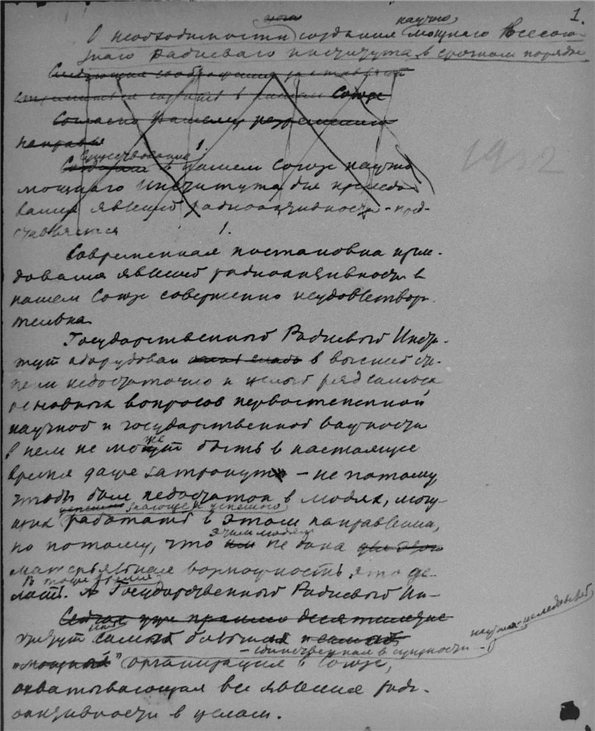 1.
О необходимости создания научно мощного Всесоюз-
ного Радиевого института в срочном порядке
Следующие соображения заставляют
в нашем Союзе
Согласно нашему разрешению
направ
1932
1.
Существование в нашем Союзе научно
мощного института для исследо-
вания явлений радиоактивности - пред-
ставляется
1.
Современная постановка иссле-
дования явлений радиоактивности в
нашем Союзе совершенно неудовлетвори-
тельна.
Государственный Радиевый Инсти-
тут оборудован в высшей сте-
пени недостаточно и целый ряд самых
основных вопросов первостепенной
научной и государственной важности
в нем не может быть в настоящее
время даже затронут - не потому
чтобы был недостаток в людях, могу-
щих успешно работать в этом направлении,
но потому, что этим людям не дана
материальная возможность это де-
лать. В то же время Государственный Радиевый Ин-
Сейчас уже прошло десятилетие
ститут самая большая
- единственная в сущности - научно-исследоват.
"мощная" организация в Союзе,
охватывающая все явления ради-
оактивности в целом.